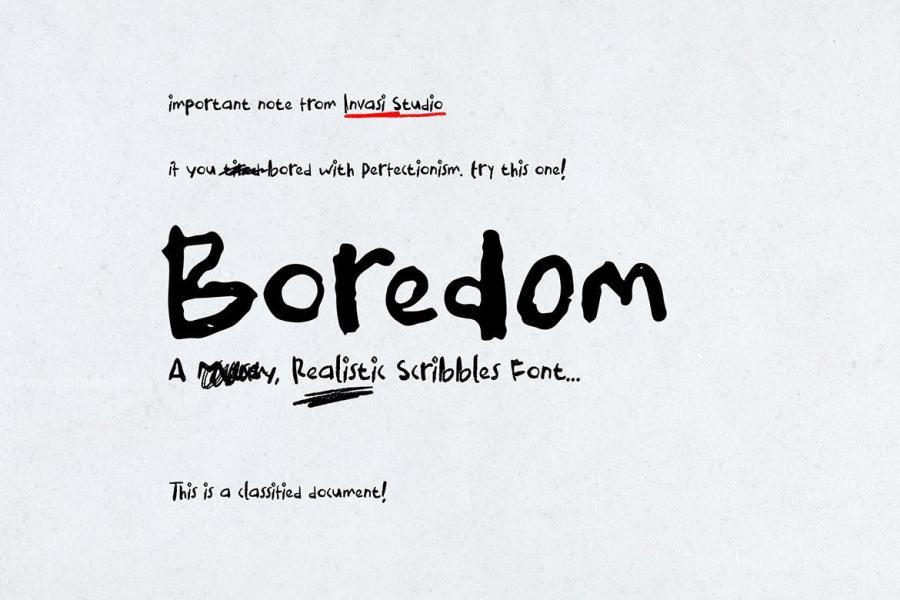 important note from Invasi Studio
if you tired bored with perfectionism. try this one!
Boredom
A , Realistic Scribbles Font...
This is a classified document!